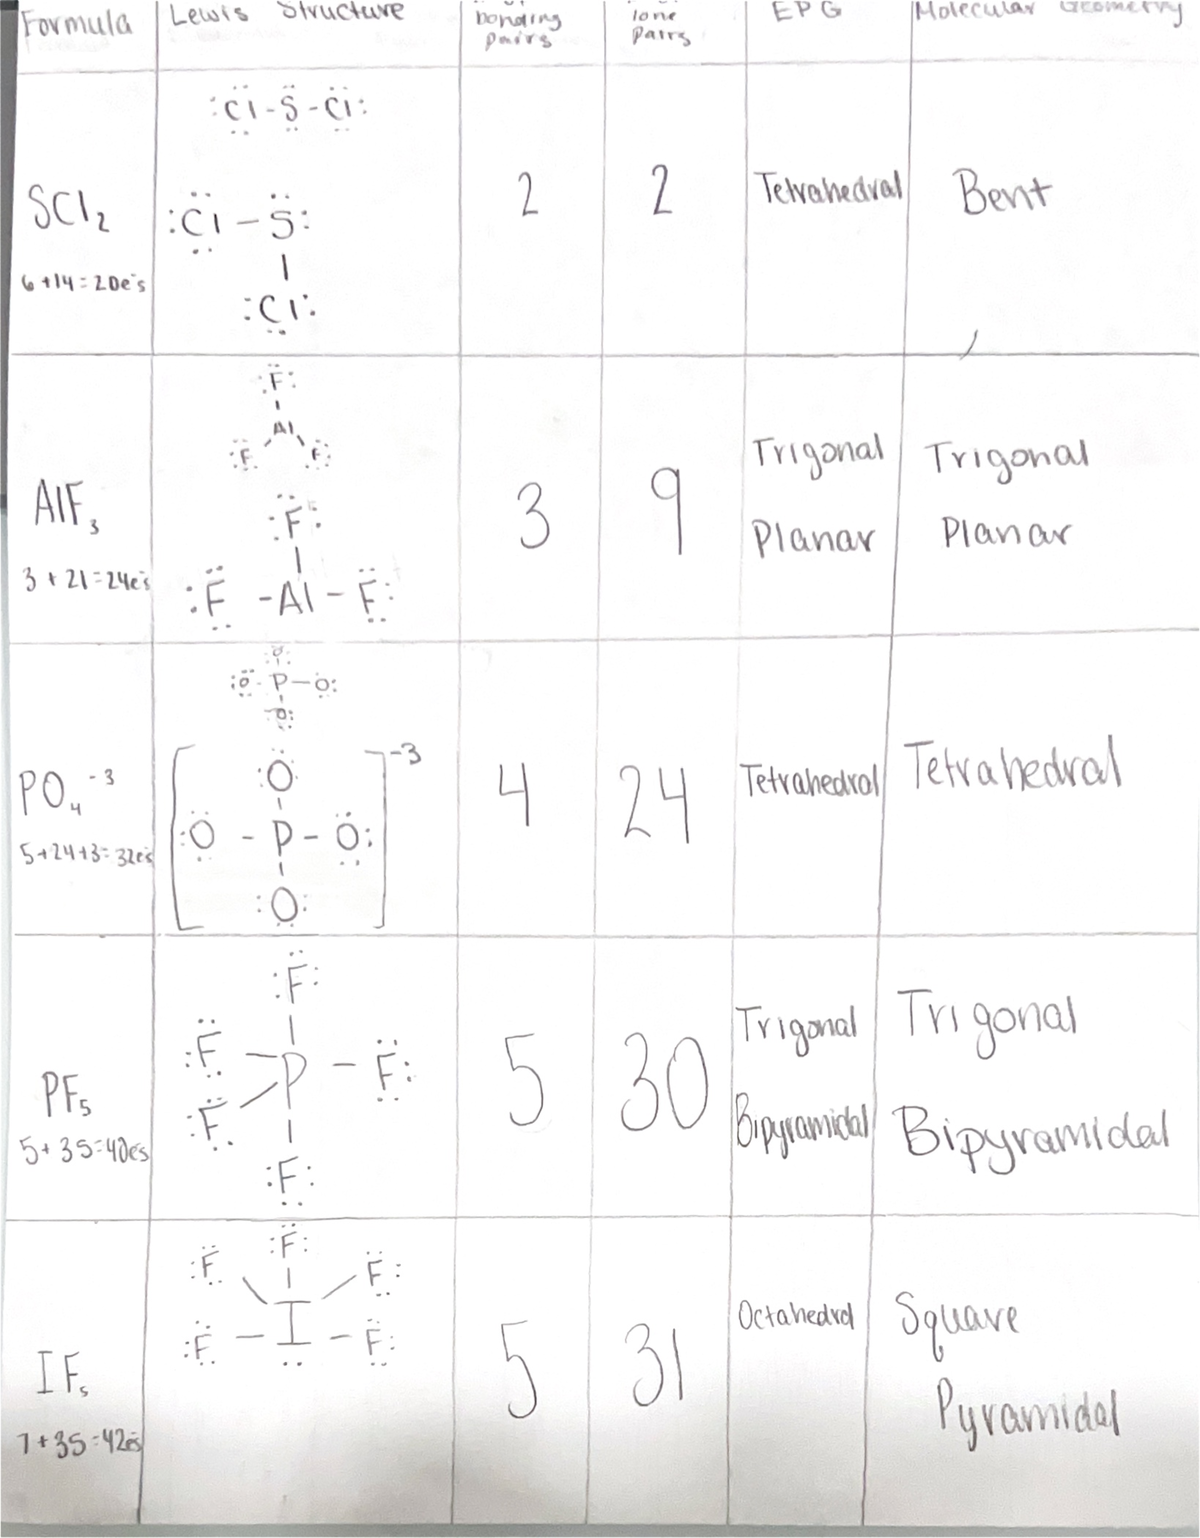 Formula
Lewis Structure
bonding
pairs
lone
pairs
EPG
Molecular Geometry
:Cl-S-Cl:
SCl₂
6+14=20e⁻s
:Cl-S:
|
:Cl:
2
2
Tetrahedral
Bent
F:
Al
:F
F:
AlF₃
3+21=24e⁻s
:F:
|
:F -Al- F:
3
9
Trigonal
Planar
Trigonal
Planar
:O:
:O-P-O:
:O:
PO₄⁻³
5+24+3=32e⁻s
[ ]⁻³
:O:
:O - P - O:
:O:
4
24
Tetrahedral
Tetrahedral
PF₅
5+35=40e⁻s
:F:
:F
P - F:
:F
:F:
5
30
Trigonal
Bipyramidal
Trigonal
Bipyramidal
IF₅
7+35=42e⁻s
:F:
:F
F:
:F - I - F:
5
31
Octahedral
Square
Pyramidal